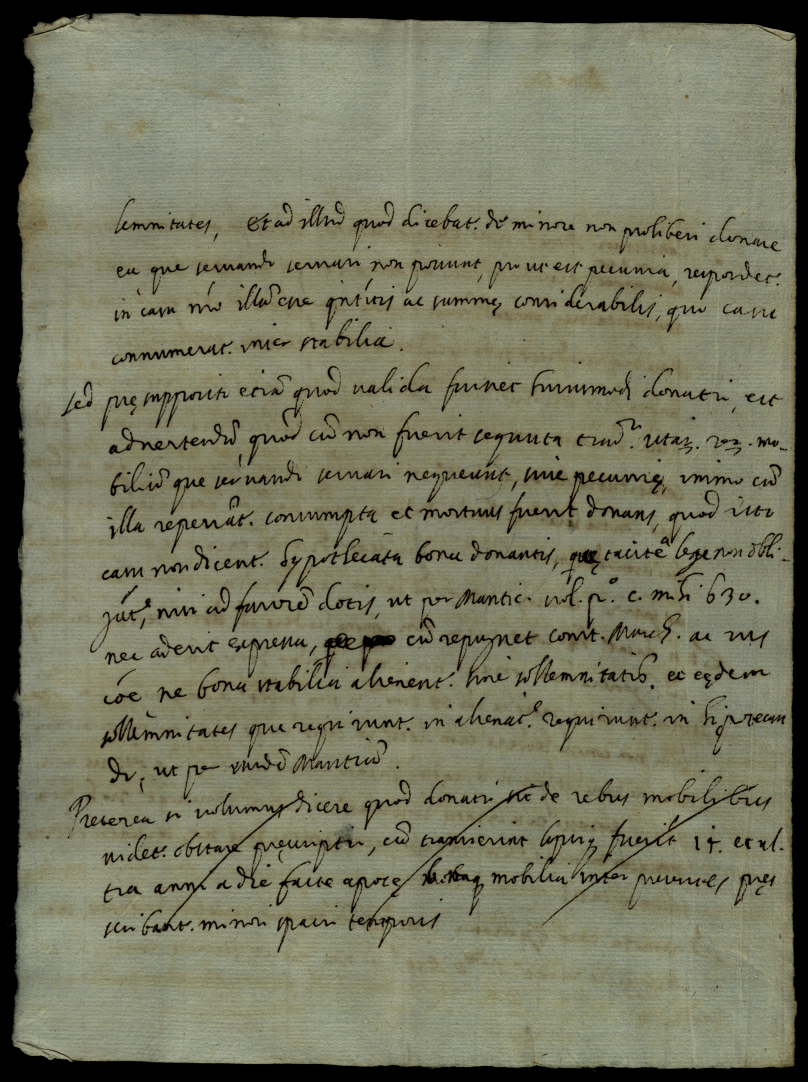 lemnitates, et ad illud quod dicebat. de minore non prohiberi donare
ea que servando servari non possunt, pro ut est pecunia, respondet.
in casu nr̄o illā esse q̄ntitatis ac summę considerabilis, quo casu
connumerat. inter stabilia.
sed pręsupposito etiā quod valida fuisset huiusmodi donatio, est
advertendū, quod cū non fuerit sequuta mo-
biliū que servando servari nequeunt, sive pecunię, immo cū
illa reperiāt. consumpta et mortuus fuerit donans, quod isto
casu non dicent. hypothecata bona donantis, tacitē lege non obli-
nisi ad favorē dotis, ut per Mantic. c. 630.
nec aderit expressa, cū repugnet const. March. ac ius
cōe ne bona stabilia alienent. sine sollemnitatib. et eędem
sollemnitates que requirunt. in alienac.e requirunt. in hipotecan
do, ut per eundē Manticū.
Preterea si volumus dicere quod donatio sit de rebus mobilibus
videt. obstare pręscriptio, cū transierint spatiū fuerit 14. et ul-
tra anni a die facte apocę mobilia inter presentes pręs
scribant. minori spatii temporis